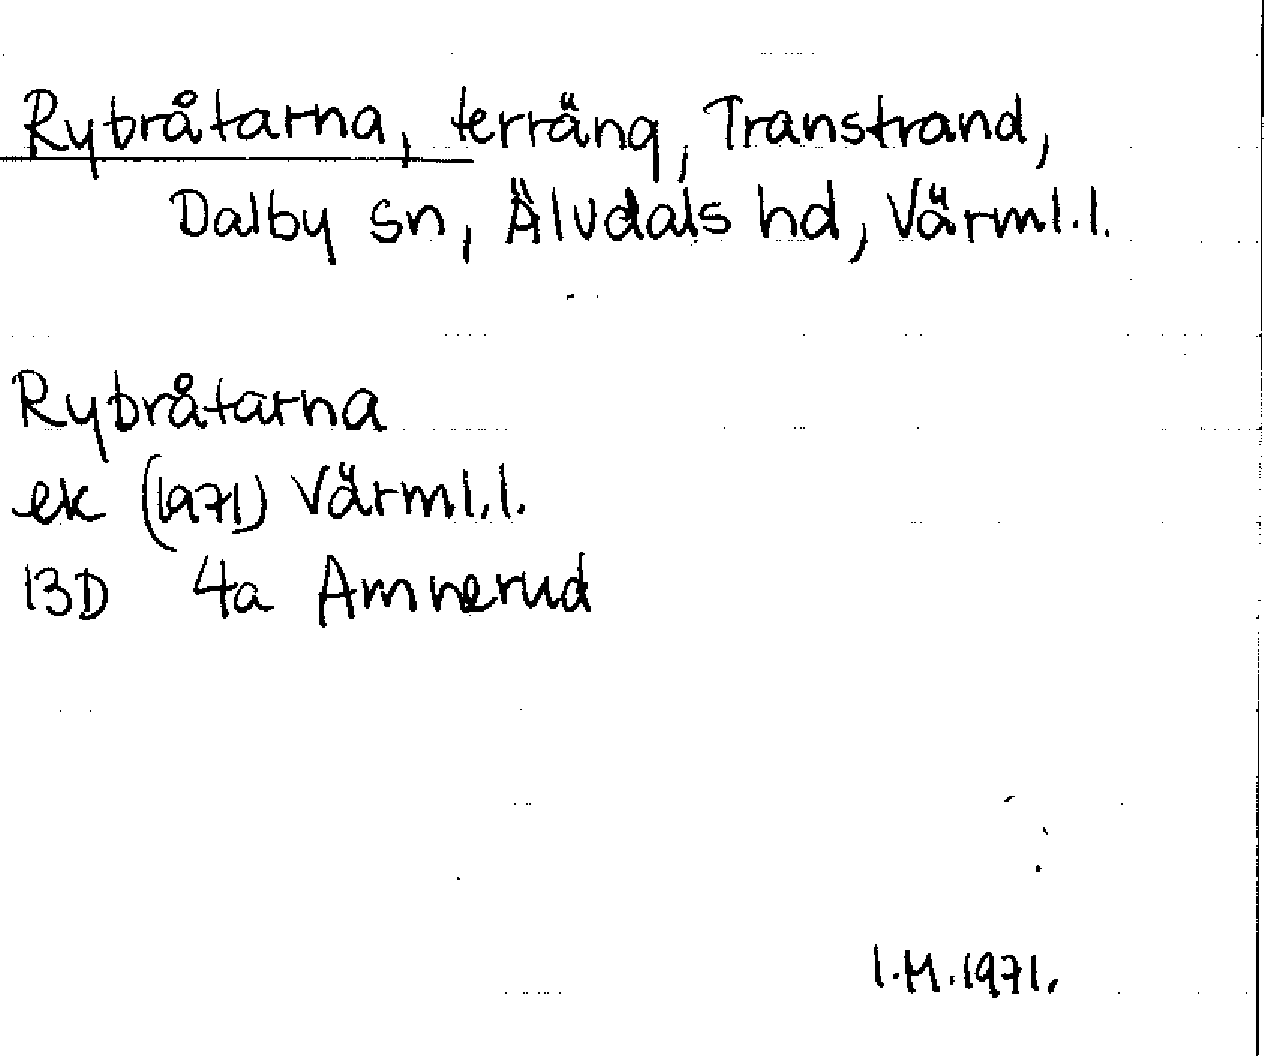 Rybråtarna, terräng, Transtrand,
Dalby sn, Älvdals hd, Värml.l.
Rybråtarna
ek (1971) Värml.l.
13D 4a Amnerud
I.M.1971.